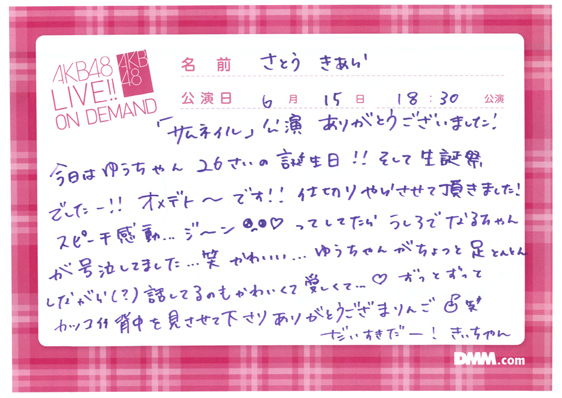 AKB48
LIVE!!
ON DEMAND
AKB
48
名前 さとう きあら
公演日 6月 15日 18:30 公演
「サムネイル」公演 ありがとうございました!
今日はゆうちゃん 26さいの誕生日!! そして生誕祭
でしたー!! オメデト〜です!! 仕切りやらさせて頂きました!
スピーチ感動... ジ〜ン ♡ ってしてたら うしろで なるちゃん
が号泣してました...笑 かわいい... ゆうちゃんがちょっと足とんとん
しながら(?)話してるのもかわいくて愛しくて...♡ ずっとずっと
カッコイイ背中を見させて下さり ありがとうござまりんご 笑
だいすきだー! きぃちゃん
DMM.com